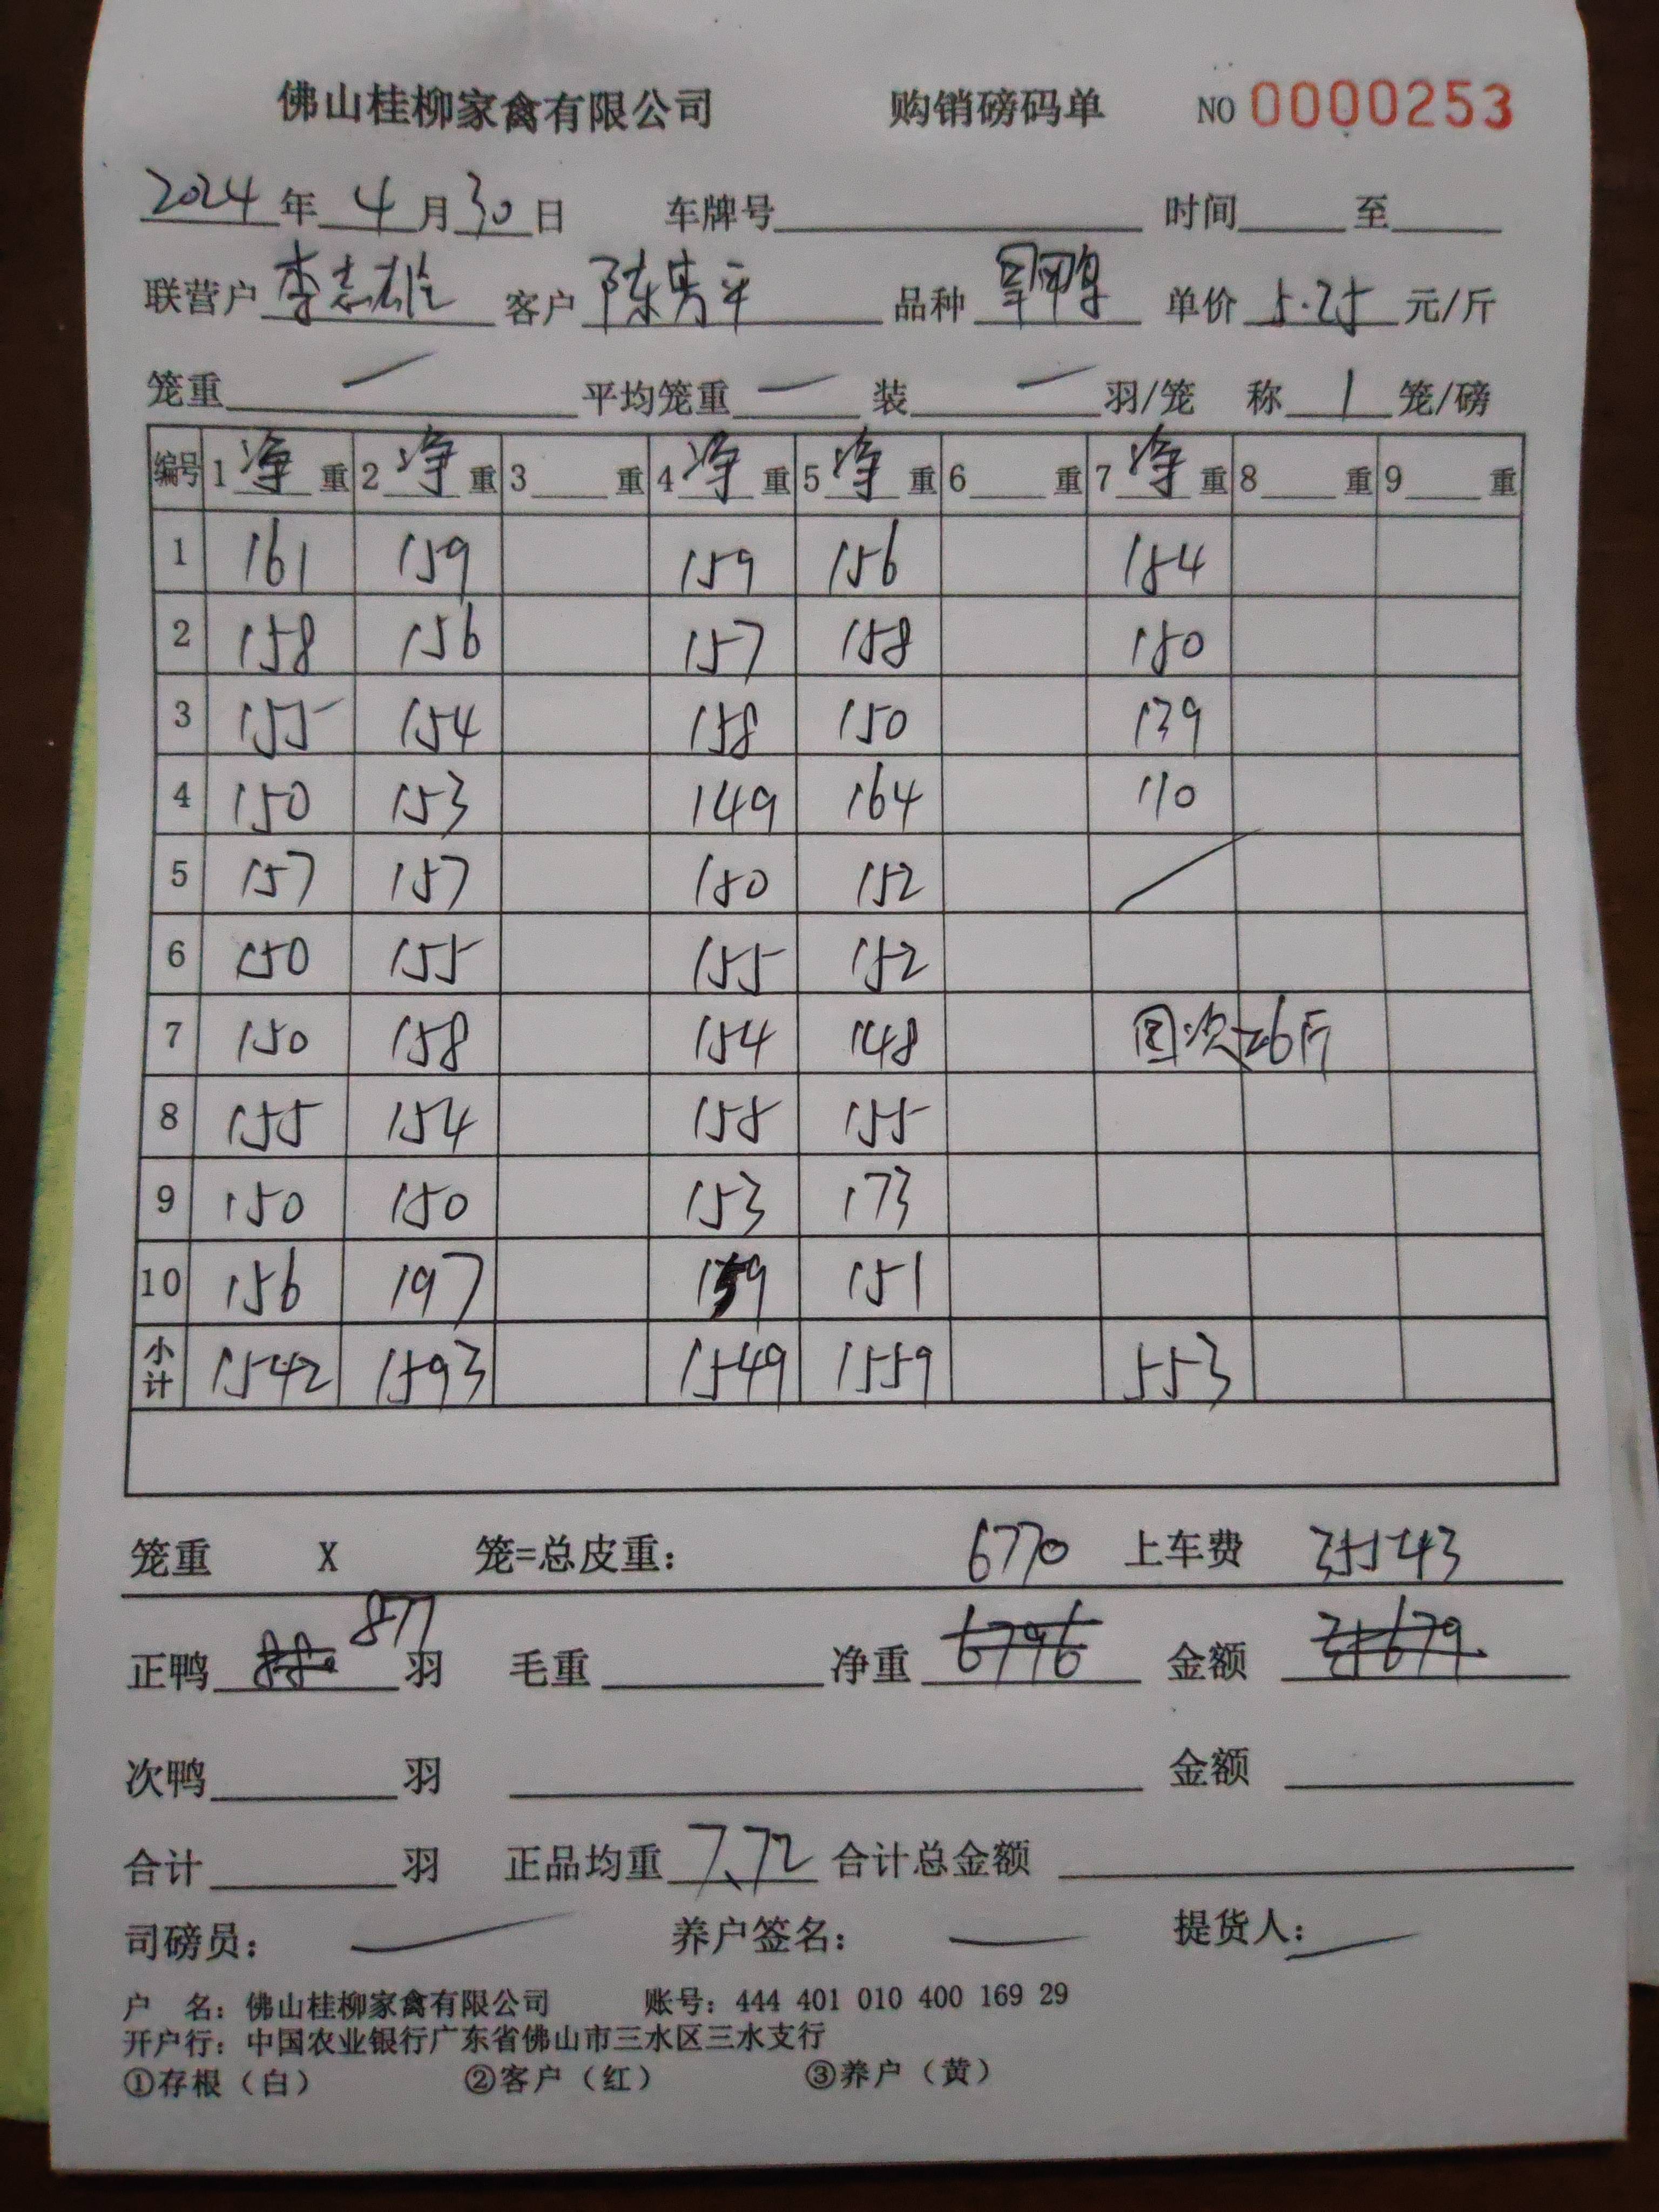 佛山桂柳家禽有限公司 购销磅码单 NO 0000253
2024年4月30日 车牌号 时间 至
联营户 李志雄 客户 陈秀平 品种 单价 5.25 元/斤
笼重 一 平均笼重 一 装 一 羽/笼 称 1 笼/磅
编号 1 净 重 2 净 重 3 重 4 净 重 5 净 重 6 重 7 净 重 8 重 9 重
1 161 159 159 156 154
2 158 156 157 158 150
3 155 154 158 150 139
4 150 153 149 164 110
5 157 157 150 152
6 150 155 155 152
7 150 158 154 148 回次26斤
8 155 154 155 155
9 150 150 153 173
10 156 197 159 151
小计 1542 1593 1549 1559 553
笼重 X 笼=总皮重: 6770 上车费 35543
877
正鸭 880 羽 毛重 净重 6796 金额 35679
次鸭 羽 金额
合计 羽 正品均重 7.72 合计总金额
司磅员: 养户签名: 提货人:
户 名: 佛山桂柳家禽有限公司 账号: 444 401 010 400 169 29
开户行: 中国农业银行广东省佛山市三水区三水支行
①存根（白） ②客户（红） ③养户（黄）